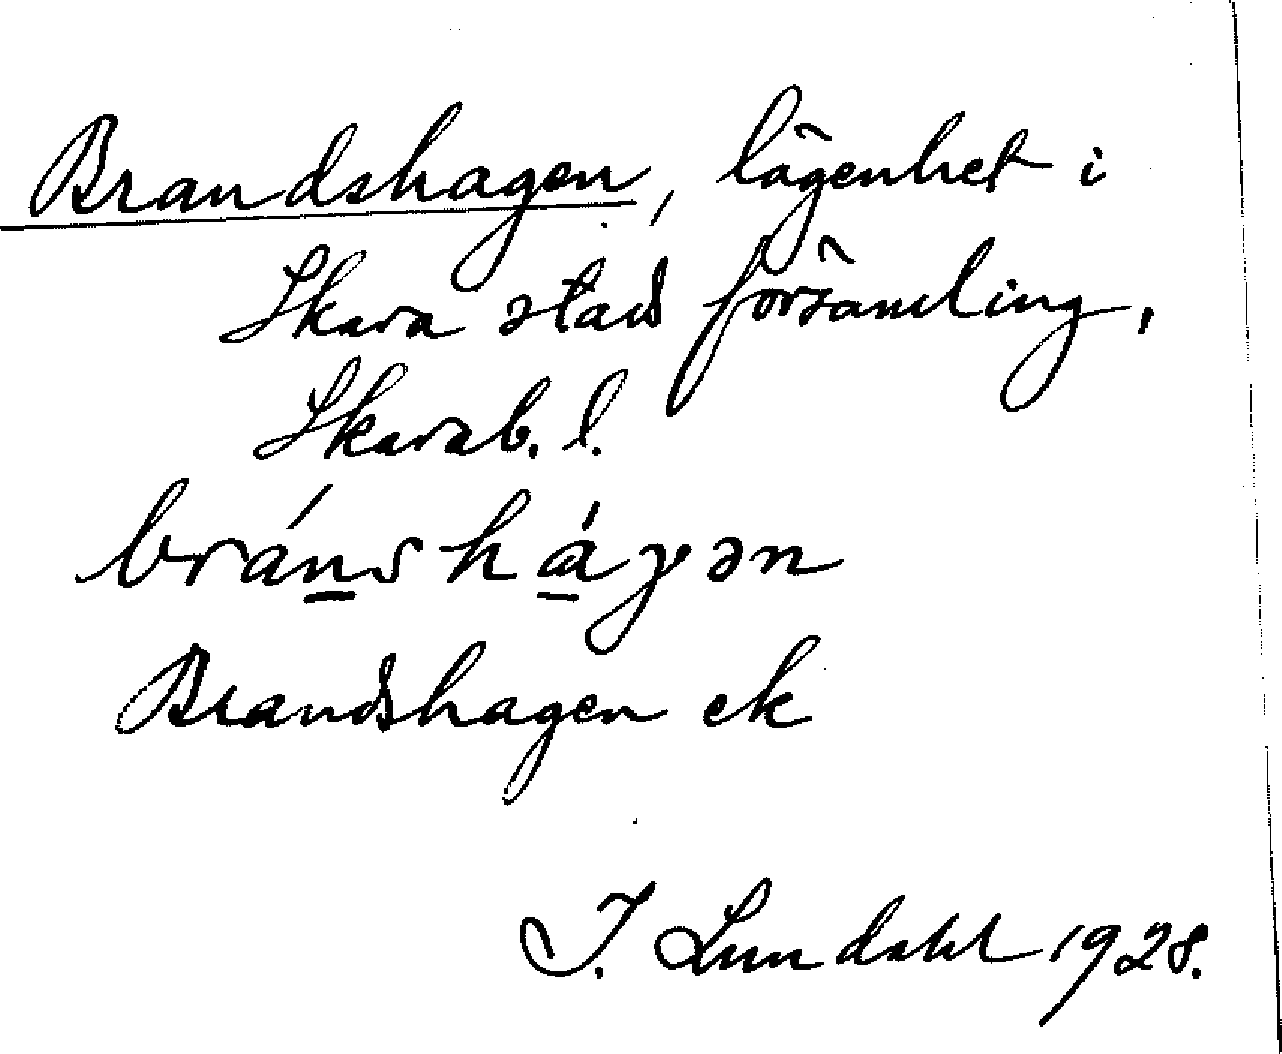 Brandshagen, lägenhet i
Skara stads församling,
Skarab. l.
bránsháγən
Brandshagen ek
I. Lundahl 1928.